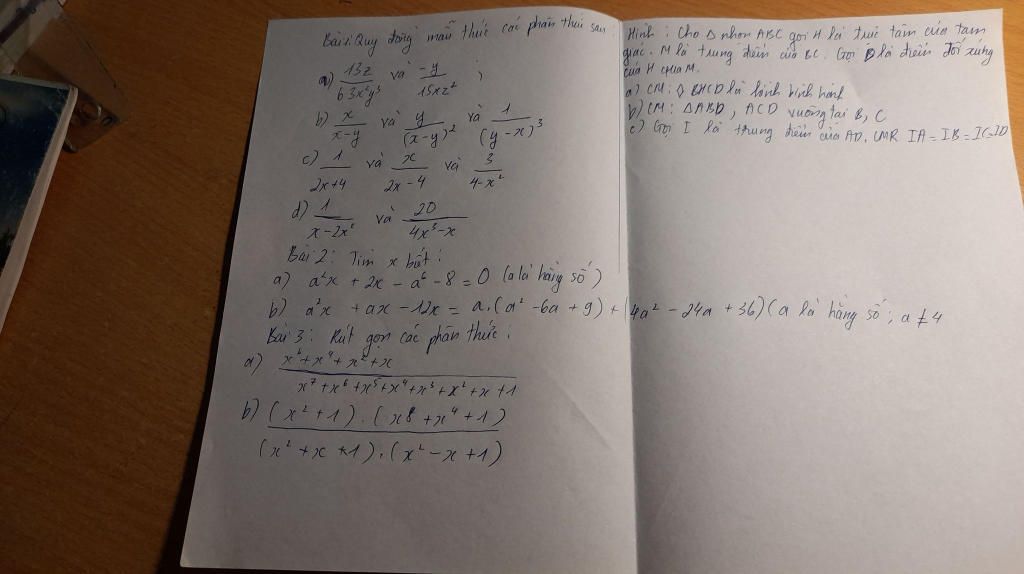 Bài 1: Quy đồng mẫu thức các phân thức sau:
a) 13z/63x²y³ và -y/15xz² ;
b) x/x-y và y/(x-y)² và 1/(y-x)³
c) 1/2x+4 và x/2x-4 và 3/4-x²
d) 1/x-2x² và 20/4x³-x
Bài 2: Tìm x biết:
a) a²x + 2x - a⁶ - 8 = 0 (a là hằng số)
b) a²x + ax - 12x = a.(a² - 6a + 9) + (4a² - 24a + 36) (a là hằng số; a ≠ 4
Bài 3: Rút gọn các phân thức:
a) x⁶+x⁴+x²+x/x⁷+x⁶+x⁵+x⁴+x³+x²+x+1
b) (x²+1).(x8+x⁴+1)/(x²+x+1).(x²-x+1)
Hình: Cho Δ nhọn ABC gọi H là trực tâm của tam
giác. M là trung điểm của BC. Gọi D là điểm đối xứng
của H qua M.
a) CM: ◊ BHCD là hình bình hành
b) CM: ΔABD, ACD vuông tại B, C
c) Gọi I là trung điểm của AD. CMR IA = IB = IC=ID